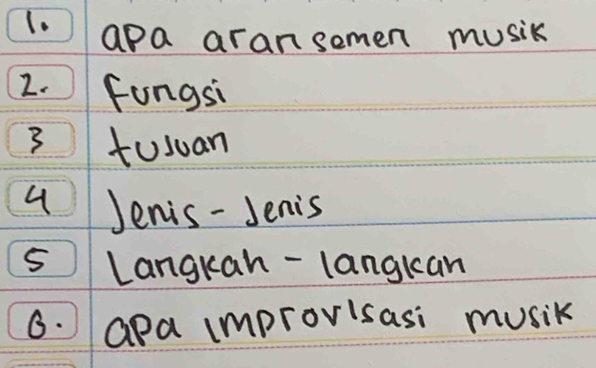 1. apa aransemen musik
2. fungsi
3 tujuan
4 Jenis - Jenis
5 Langkah - langkah
6. apa improvisasi musik